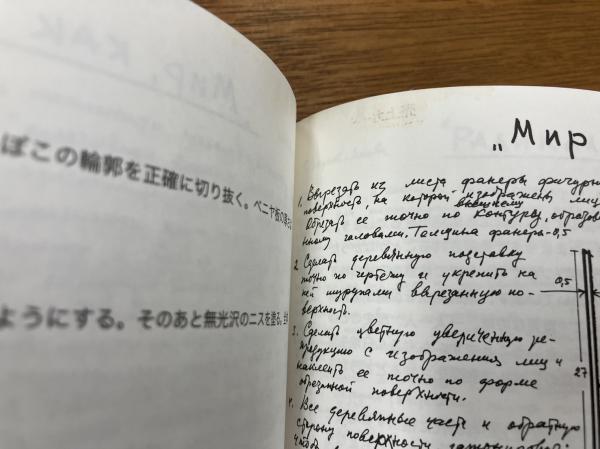 ぼこの輪郭を正確に切り抜く。ベニヤ板の厚さは
ようにする。そのあと無光沢のニスを塗る。
„Мир
1. Вырезать из листа фанеры фигурную
поверхность, на которой изображены лица
Обрезать ее точно по внешнему контуру, образован
нному головами. Толщина фанеры - 0,5
2. Сделать деревянную подставку
точно по чертежу и укрепить на
ней шурупами вырезанную по-
верхность.
0,5
3. Сделать цветную увеличенную ре-
продукцию с изображения лиц и
наклеить ее точно по форме
обрезанной поверхности.
27
4. Все деревянные части и обратную
сторону поверхности